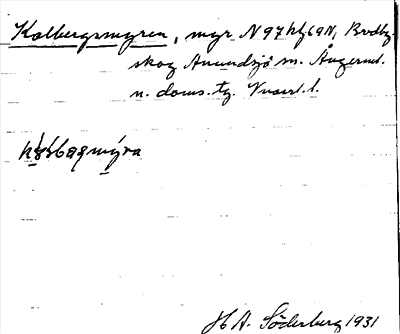 Kalbergsmyren, myr N 97 hf 69 N, Bredby-
skog Anundsjö sn. Ångerml.
n. doms. tg. Vnorrl. l.
H A. Söderberg 1931